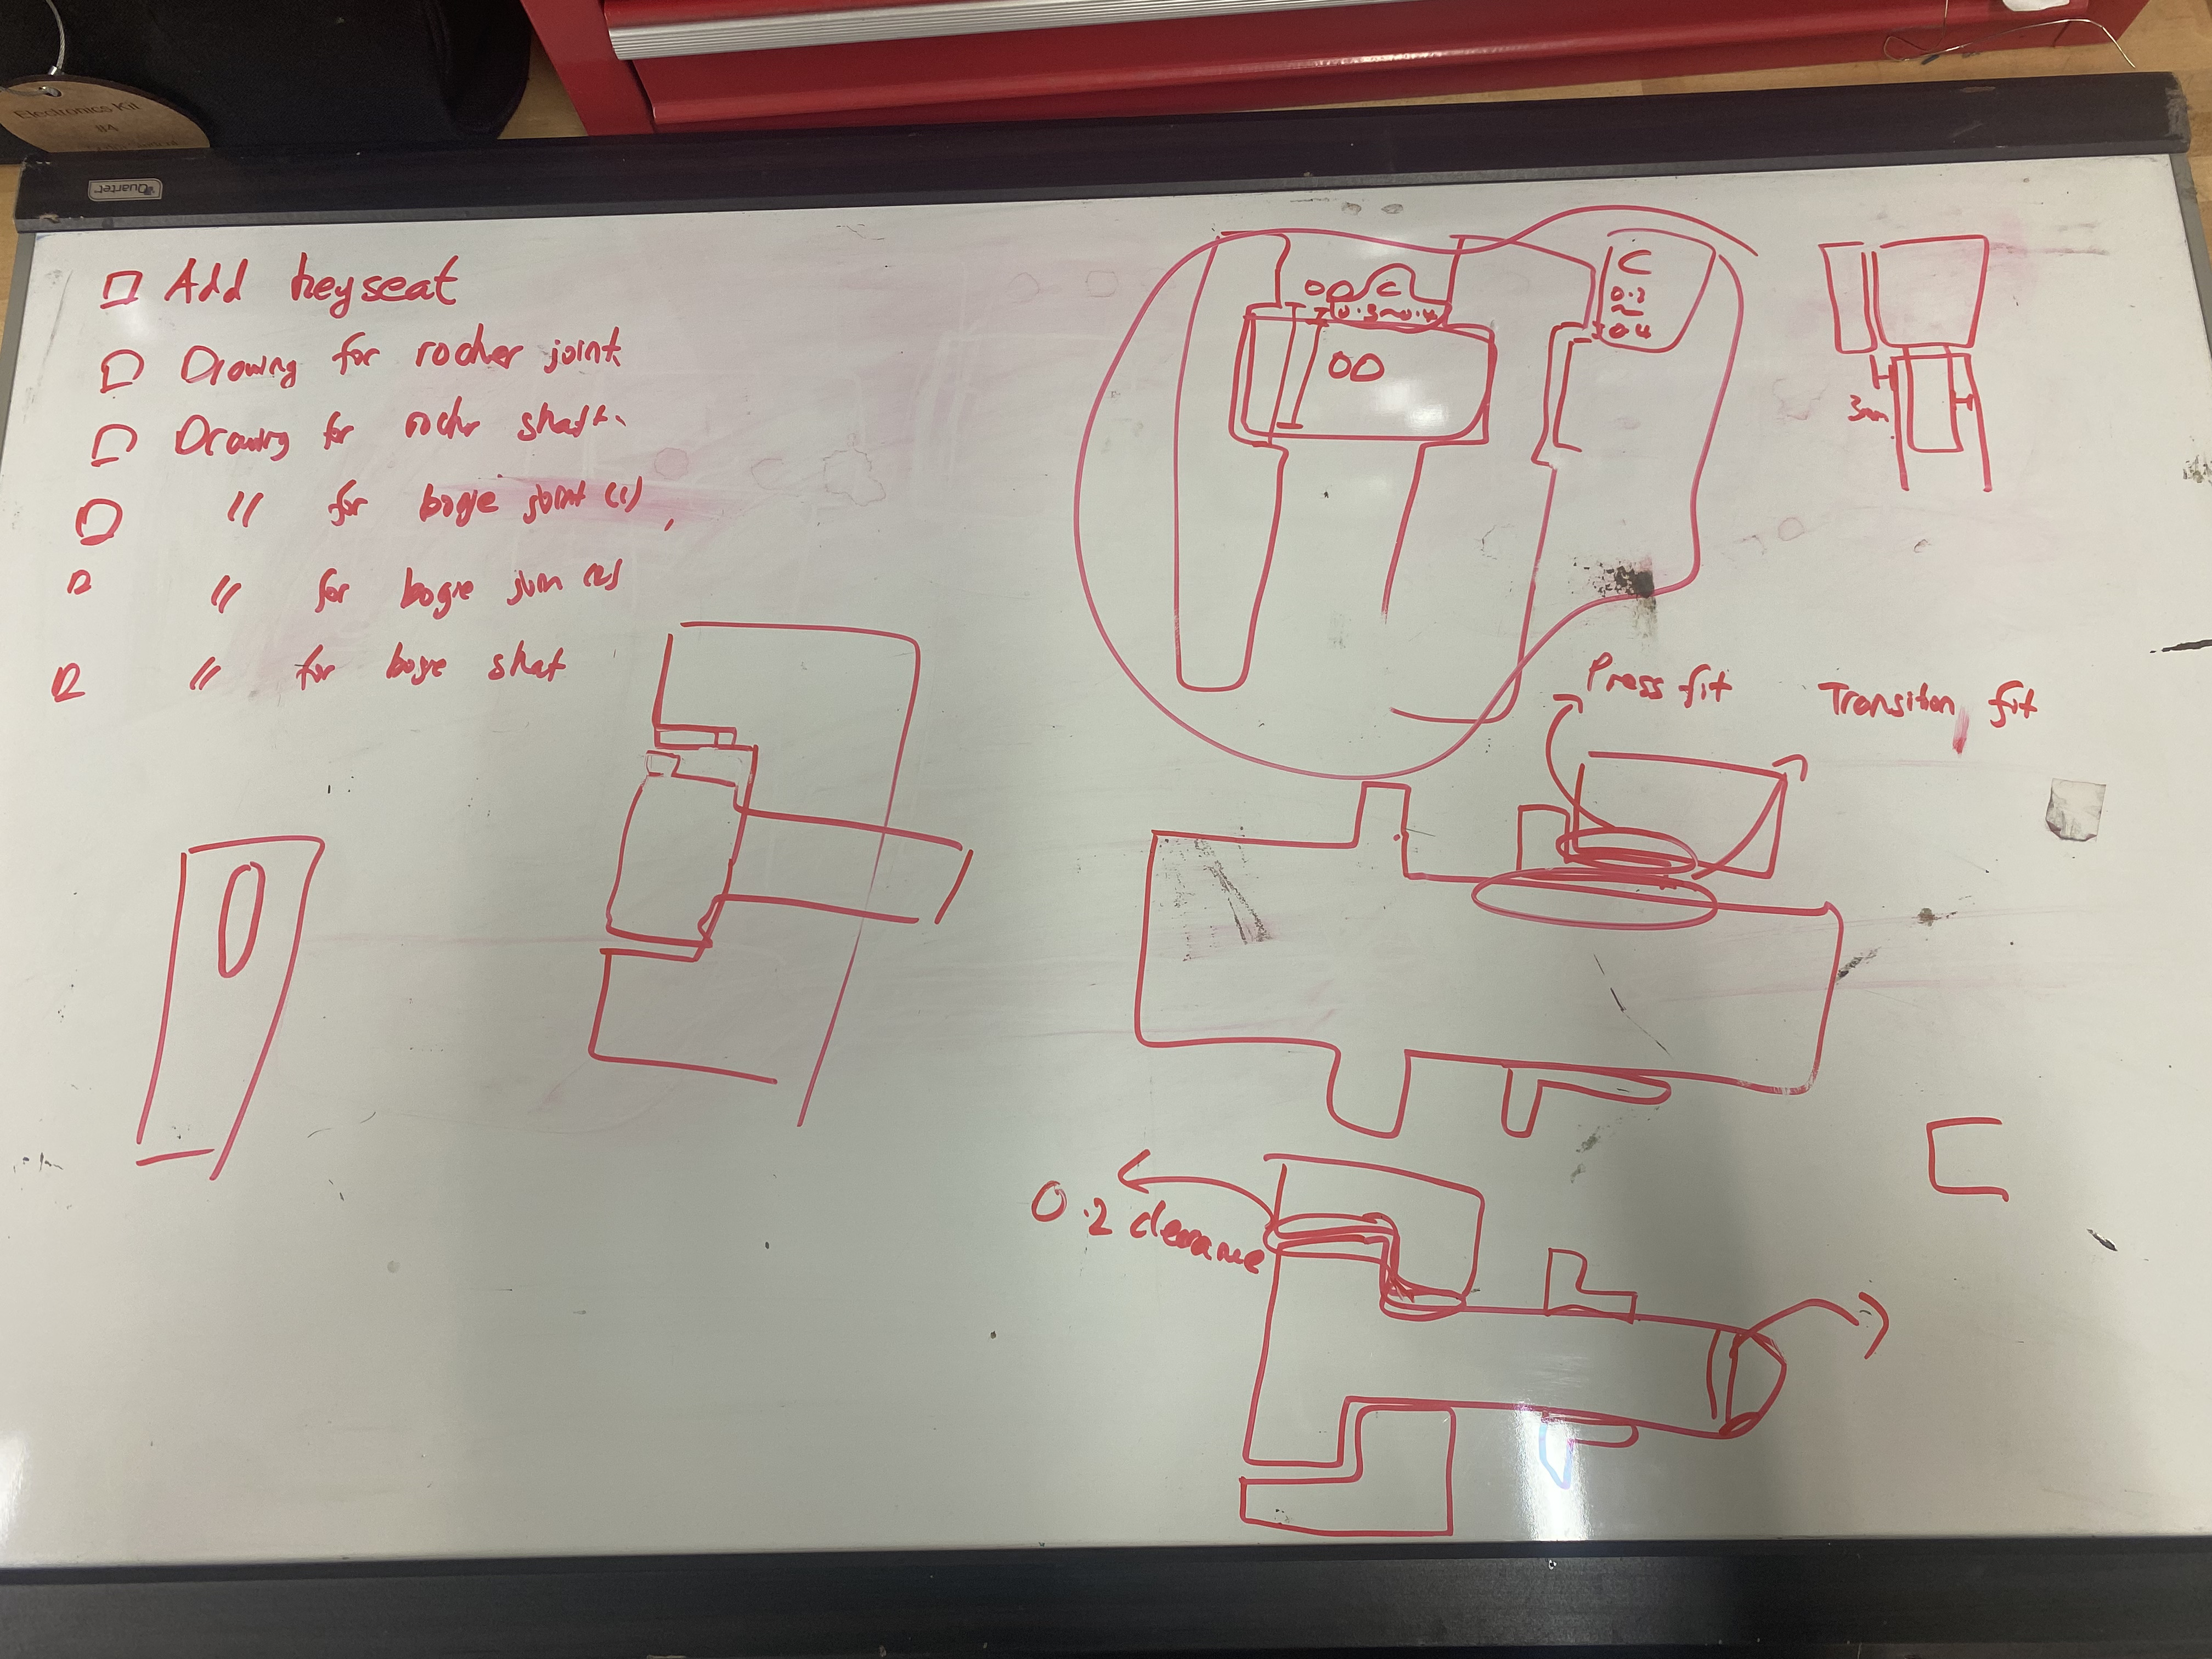 Electronics Kit
#4
Quartet
Add keyseat
Drawing for rocker joint
Drawing for rocker shaft
" for bogie joint (1)
" for bogie join (2)
" for bogie shaf
OD
C
0.3~0.4
OD
C
0.2
~
0.4
3mm
Press fit Transition fit
0.2 clearance